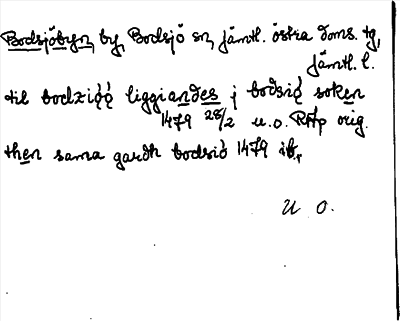 Bodsjöbyn, by, Bodsjö sn, Jämtl. östra doms. tg,
Jämtl. l.
til bodziǫ́ǫ́ liggiandes j bodsiǫ́ soken
1479 28/2 u.o. RAp orig.
then sama gardh bodsió 1479 ib.,
U O.